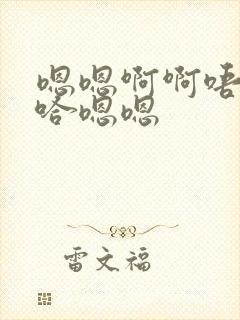 嗯嗯啊啊唔
哈嗯嗯
雷文福